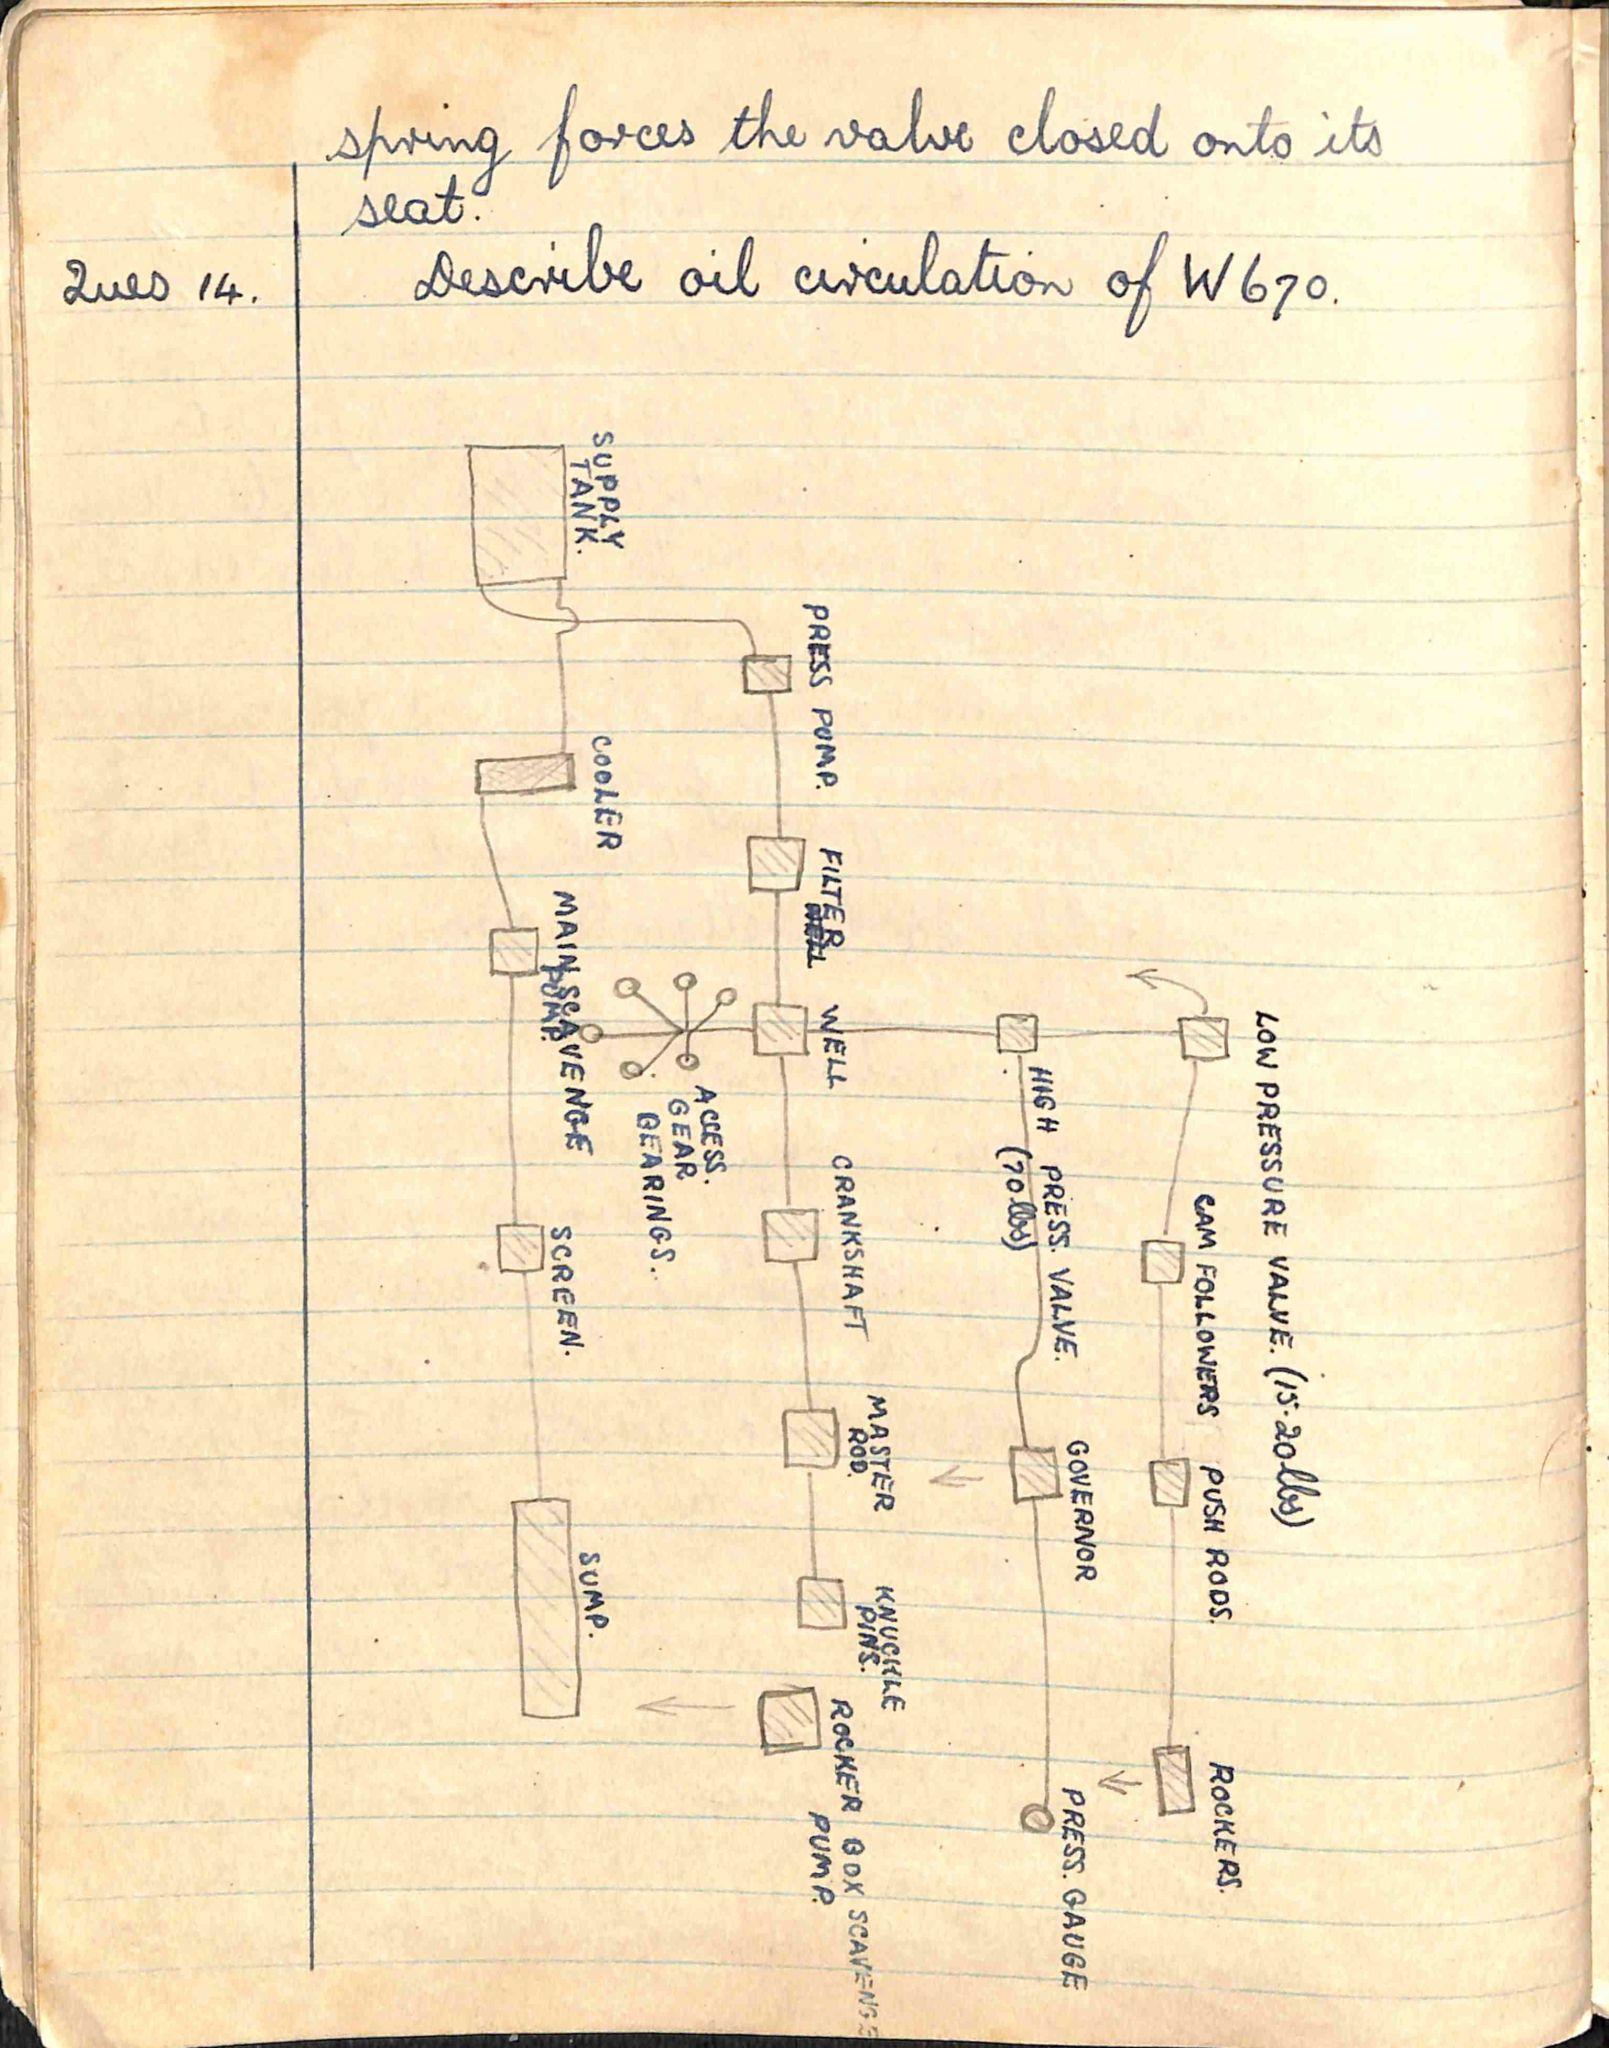 spring forces the valve closed onto its
seat.
Ques 14.
Describe oil circulation of W670.
LOW PRESSURE VALVE. (15-20lbs)
CAM FOLLOWERS
PUSH RODS.
ROCKERS.
HIGH PRESS. VALVE.
(70lbs)
GOVERNOR
PRESS. GAUGE
PRESS PUMP.
FILTER
WELL
WELL
CRANKSHAFT
MASTER
ROD.
KNUCKLE
PINS.
ROCKER BOX SCAVENGE
PUMP.
ACCESS.
GEAR
BEARINGS.
SUPPLY
TANK.
COOLER
MAIN SCAVENGE
PUMP.
SCREEN.
SUMP.